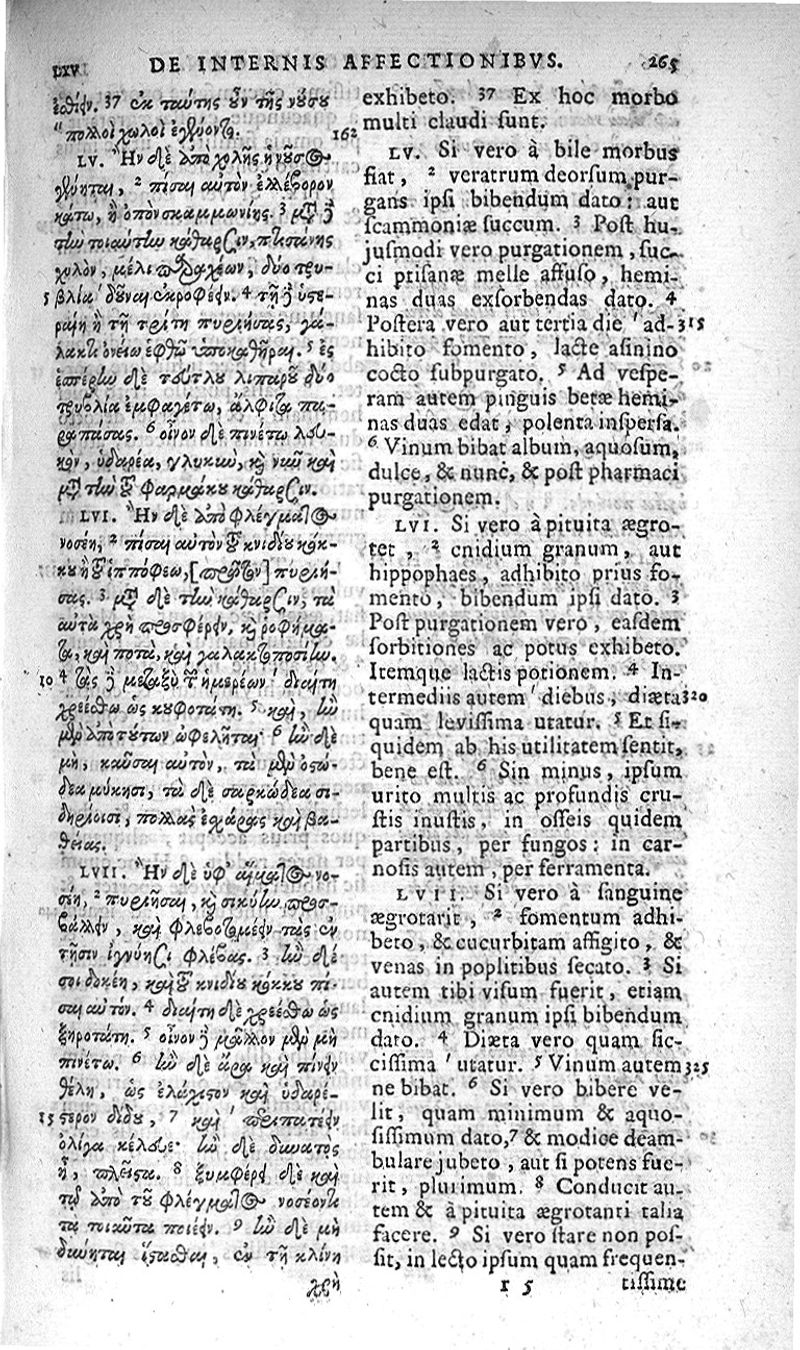 DE INTERNIS AFFECTIONIBVS. 265
ἐσθίειν. 37 ἐκ ταύτης οὖν τῆς νούσου
πολλοὶ χωλοὶ ἐγένοντο.
LV. Ἢν δὲ ἀπὸ χολῆς ἡ νοῦσος
γένηται, 2 πῖσαι αὐτὸν ἐλλέβορον
κάτω, ἢ ὀπὸν σκαμμωνίης. 3 μετὰ δὲ
τὴν τοιαύτην κάθαρσιν, πτισάνης
χυλὸν, μέλι παραχέων, δύο τρυ-
5 βλία δοῦναι ἐκροφέειν. 4 τῇ δὲ ὑστε-
ραίῃ ἢ τῇ τρίτῃ πυριήσας, γά-
λακτι ὀνείῳ ἑφθῷ ὑποκαθῆραι. 5 ἐς
ἑσπέρην δὲ τεύτλου λιπαροῦ δύο
τρυβλία ἐμφαγέτω, ἄλφιτα πα-
ραπάσας. 6 οἶνον δὲ πινέτω λευ-
κὸν, ὑδαρέα, γλυκὺν, καὶ νῦν καὶ
μετὰ τὴν τοῦ φαρμάκου κάθαρσιν.
LVI. Ἢν δὲ ἀπὸ φλέγματος
νοσέῃ, 2 πῖσαι αὐτὸν τοῦ κνιδίου κόκ-
κου ἢ τοῦ ἱππόφεω, [πρῶτον] πυριή-
σας. 3 μετὰ δὲ τὴν κάθαρσιν, τὰ
αὐτὰ χρὴ προσφέρειν, καὶ ροφήμα-
τα, καὶ ποτὰ, καὶ γαλακτοποσίην.
10 4 τὰς δὲ μεταξὺ τῶν ἡμερέων διαίτῃ
χρεέσθω ὡς κουφοτάτῃ. 5 καὶ, ἢν
μὲν ἀπὸ τούτων ὠφελῆται· 6 ἢν δὲ
μὴ, καῦσαι αὐτὸν, τὰ μὲν ὀστώ-
δεα μύκησι, τὰ δὲ σαρκώδεα σι-
δηρίοισι, πολλὰς ἐσχάρας καὶ βα-
θείας.
LVII. Ἢν δὲ ὑφ' αἵματος νο-
σέῃ, 2 πυριῆσαι, καὶ σικύην προσ-
βάλλειν, καὶ φλεβοτομέειν τὰς ἐν
τῇσιν ἰγνύῃσι φλέβας. 3 ἢν δέ
σοι δοκέῃ, καὶ τοῦ κνιδίου κόκκου πῖ-
σαι αὐτόν. 4 διαίτῃ δὲ χρεέσθω ὡς
ξηροτάτῃ. 5 οἶνον δὲ μᾶλλον μὲν μὴ
πινέτω. 6 ἢν δὲ ἄρα καὶ πίνειν
θέλῃ, ὡς ἐλάχιστον καὶ ὑδαρέ-
15 στερον δίδου, 7 καὶ περιπατέειν
ὀλίγα κέλευε· ἢν δὲ δυνατὸς
ᾖ, πλεῖστα. 8 ξυμφέρει δὲ καὶ
τῷ ἀπὸ τοῦ φλέγματος νοσέοντι
τὰ τοιαῦτα ποιέειν. 9 ἢν δὲ μὴ
δύνηται ἵστασθαι, ἐν τῇ κλίνῃ
χρὴ
exhibeto. 37 Ex hoc morbo
162 multi claudi sunt.
LV. Si vero à bile morbus
fiat, 2 veratrum deorsum pur-
gans ipsi bibendum dato: aut
scammoniæ succum. 3 Post hu-
jusmodi vero purgationem, suc-
ci ptisanæ melle affuso, hemi-
nas duas exsorbendas dato. 4
Postera vero aut tertia die ad- 315
hibito fomento, lacte asinino
cocto subpurgato. 5 Ad vespe-
ram autem pinguis betæ hemi-
nas duas edat, polenta inspersa.
6 Vinum bibat album, aquosum,
dulce, & nunc, & post pharmaci
purgationem.
LVI. Si vero à pituita ægro-
tet, 2 cnidium granum, aut
hippophaes, adhibito prius fo-
mento, bibendum ipsi dato. 3
Post purgationem vero, easdem
sorbitiones ac potus exhibeto.
Itemque lactis potionem. 4 In-
termediis autem diebus, diæta 320
quam levissima utatur. 5 Et si-
quidem ab his utilitatem sentit,
bene est. 6 Sin minus, ipsum
urito multis ac profundis cru-
stis inustis, in osseis quidem
partibus, per fungos: in car-
nosis autem, per ferramenta.
LVII. Si vero à sanguine
ægrotarit, 2 fomentum adhi-
beto, & cucurbitam affigito, &
venas in poplitibus secato. 3 Si
autem tibi visum fuerit, etiam
cnidium granum ipsi bibendum
dato. 4 Diæta vero quam sic-
cissima utatur. 5 Vinum autem 325
ne bibat. 6 Si vero bibere ve-
lit, quam minimum & aquo-
sissimum dato, 7 & modice deam-
bulare jubeto, aut si potens fue-
rit, plurimum. 8 Conducit au-
tem & à pituita ægrotanti talia
facere. 9 Si vero stare non pos-
sit, in lecto ipsum quam frequen-
I 5 tissime